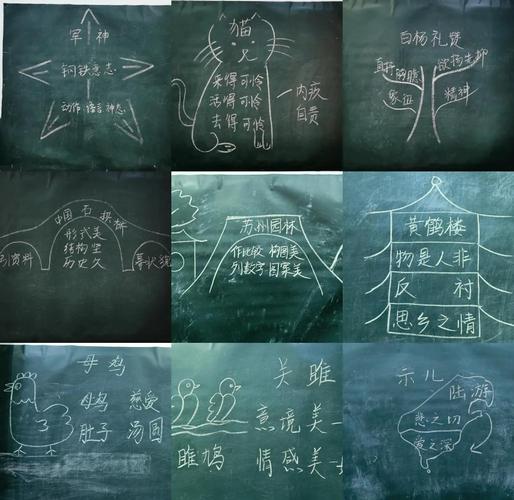 军神
钢铁意志
动作 语言 神态
猫
来得可怜
活得可怜
去得可怜
内疚
自责
白杨礼赞
象征
精神
中国石拱桥
形式美
结构坚
历史久
引资料
摹状貌
苏州园林
作比较 构图美
列数字 图案美
黄鹤楼
物是人非
反衬
思乡之情
母鸡
母鸡 慈爱
肚子 汤圆
关雎
意境美
雎鸠 情感美
示儿
陆游
悲之切
爱之深